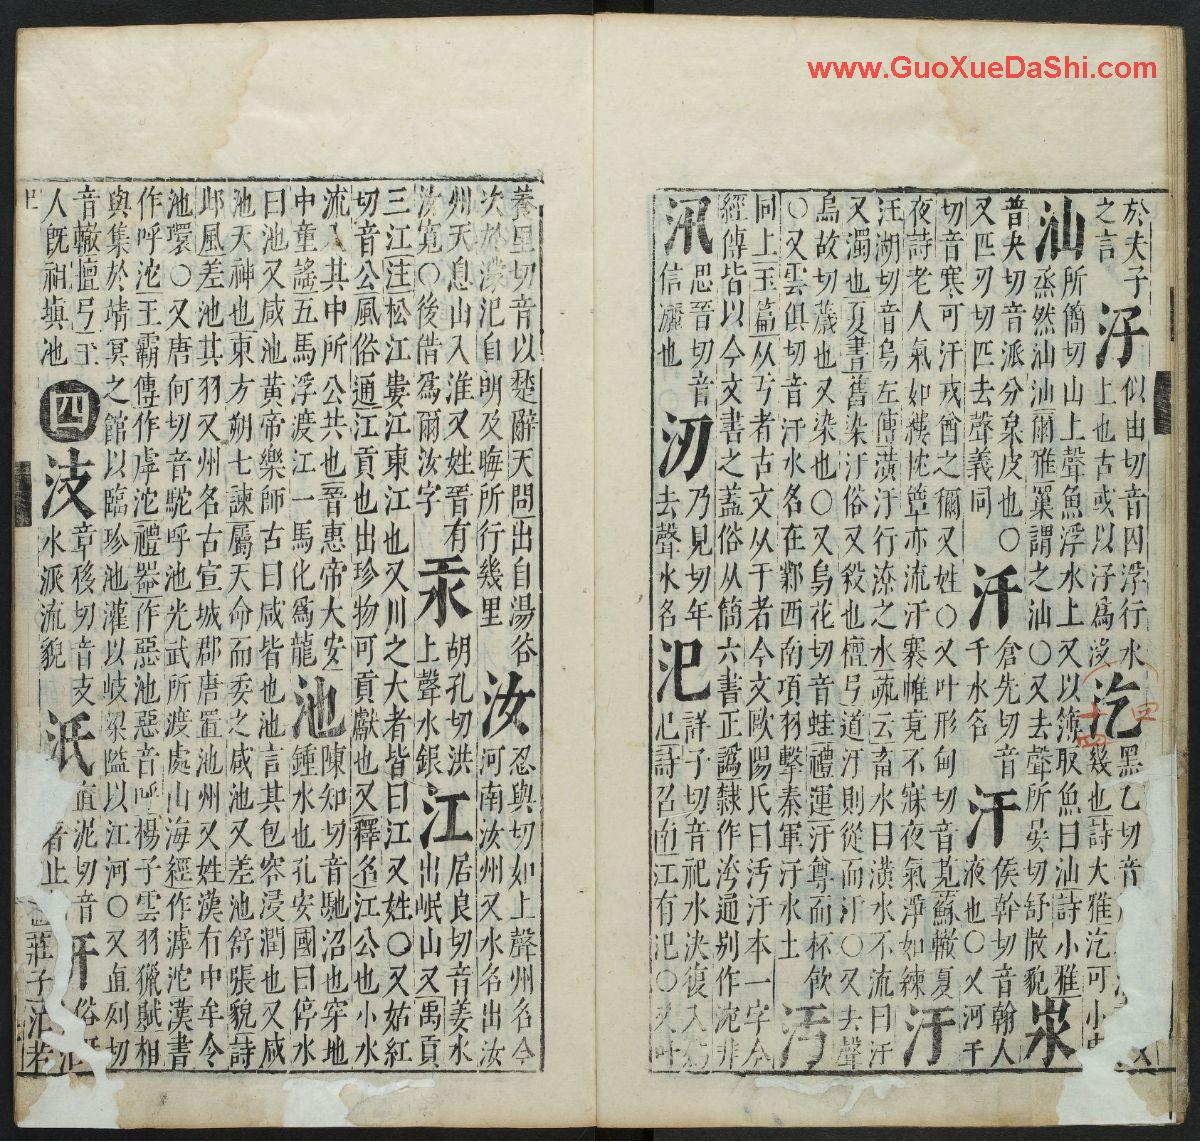 於夫子
之言
汓
似由切音囚浮行水
上也古或以汓為沒
汔
黑乙切音
幾也詩大雅汔可小
汕
所簡切山上聲魚浮水上又以簿取魚曰汕詩小雅
烝然汕汕爾雅罺謂之汕○又去聲所晏切舒散貌
普夬切音派分泉皮也○
又匹刃切匹去聲義同
汘
倉先切音
千水名
汗
侯幹切音翰人
液也○又河干
切音寒可汗戎酋之稱又姓○又叶形甸切音莧蘇轍夏
夜詩老人氣如縷枕簟亦流汗褰帷竟不寐夜氣淨如練
汙
汪湖切音烏左傳潢汙行潦之水疏云畜水曰潢水不流曰汙
又濁也夏書舊染汙俗又殺也檀弓道汙則從而汙○又去聲
烏故切薉也又染也○又烏花切音蛙禮運汙尊而杯飲
○又雲俱切音汙水名在鄴西南項羽擊秦軍汙水土
汚
同上玉篇从丂者古文从于者今文歐陽氏曰汚汙本一字今
經傳皆以今文書之蓋俗从簡六書正譌隸作洿通别作非
汛
思晉切音
信灑也
㲽
乃見切年
去聲水名
汜
詳子切音祀水決復入為
汜詩召南江有汜○又叶
養里切音以楚辭天問出自湯谷
次於濛汜自明及晦所行幾里
汝
忍與切如上聲州名今
河南汝州又水名出汝
州天息山入淮又姓晉有
汝寬○後借爲爾汝字
汞
胡孔切洪
上聲水銀
江
居良切音姜水
出岷山又禹貢
三江注松江婁江東江也又川之大者皆曰江又姓○又姑紅
切音公風俗通江貢也出珍物可貢獻也又釋名江公也小水
流入其中所公共也晉惠帝大安
中童謠五馬浮渡江一馬化爲龍
池
陳知切音馳沼也穿地
鍾水也孔安國曰停水
曰池又咸池黃帝樂師古曰咸皆也池言其包容浸潤也又咸
池天神也東方朔七諫屬天命而委之咸池又差池舒張貌詩
邶風差池其羽又州名古宣城郡唐置池州又姓漢有中牟令
池瑗○又唐何切音駝呼池光武所渡處山海經作滹沱漢書
作呼沱王霸傳作虖沱禮器作惡池惡音呼楊子雲羽獵賦相
與集於靖冥之館以臨珍池灌以岐梁隘以江河○又直列切
音轍檀弓主
人既祖填池
四
汥
章移切音支
水派流貌
汦
直泥切音
者止
俗
莊子
www.GuoXueDaShi.com